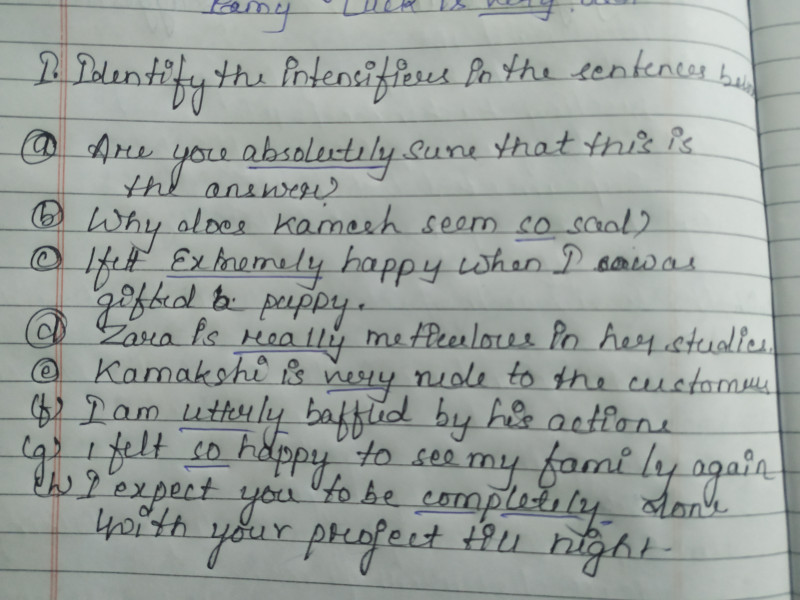 Luck is very
I. Identify the intensifiers in the sentences below
(a) Are you absolutely sure that this is
the answer?
(b) Why does Kamesh seem so sad?
(c) I felt Extremely happy when I was
gifted a puppy.
(d) Zara is really meticulous in her studies.
(e) Kamakshi is very rude to the customers
(f) I am utterly baffled by his actions
(g) I felt so happy to see my family again
(h) I expect you to be completely done
with your project till night.